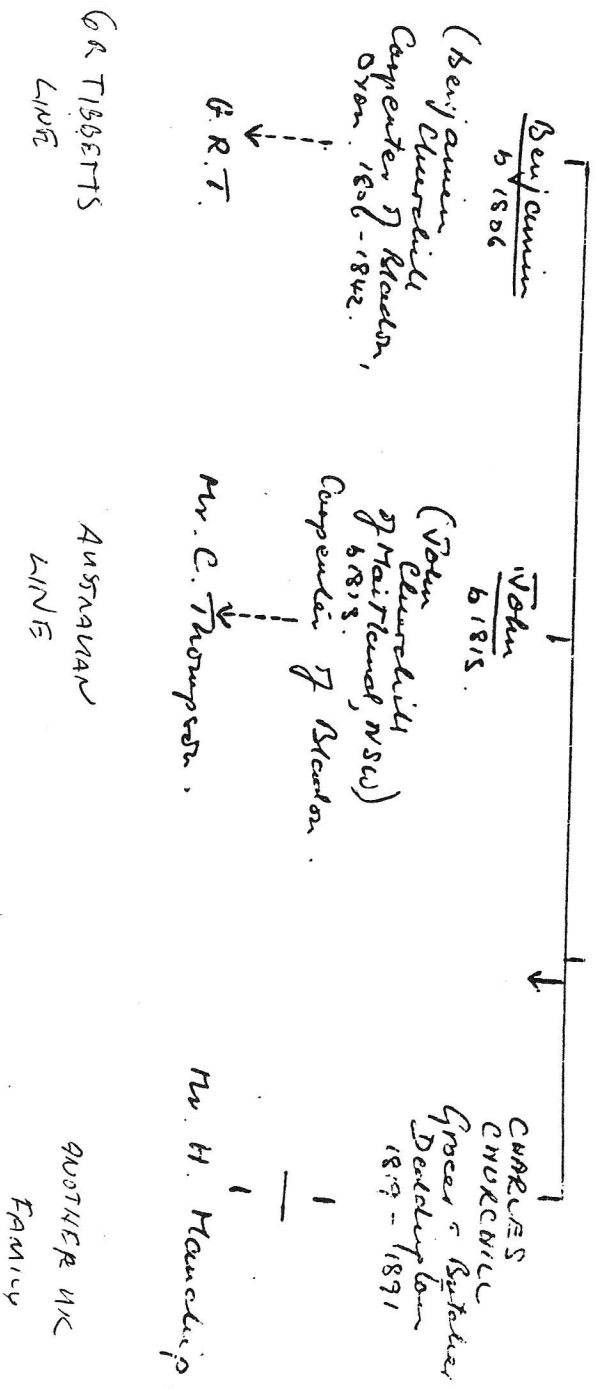 Benjamin
b 1806
(Benjamin
Churchill
Carpenter of Bladon,
Oxon. 1806-1842.
G.R.T.
GR TIBBETTS
LINE
John
b 1815.
(John
Churchill
of Maitland, NSW)
b 1815.
Carpenter of Bladon.
Mr. C. Thompson.
AUSTRALIAN
LINE
CHARLES
CHURCHILL
Grocer & Butcher
Deddington
1819-1891
Mr. H. Manchip
ANOTHER UK
FAMILY